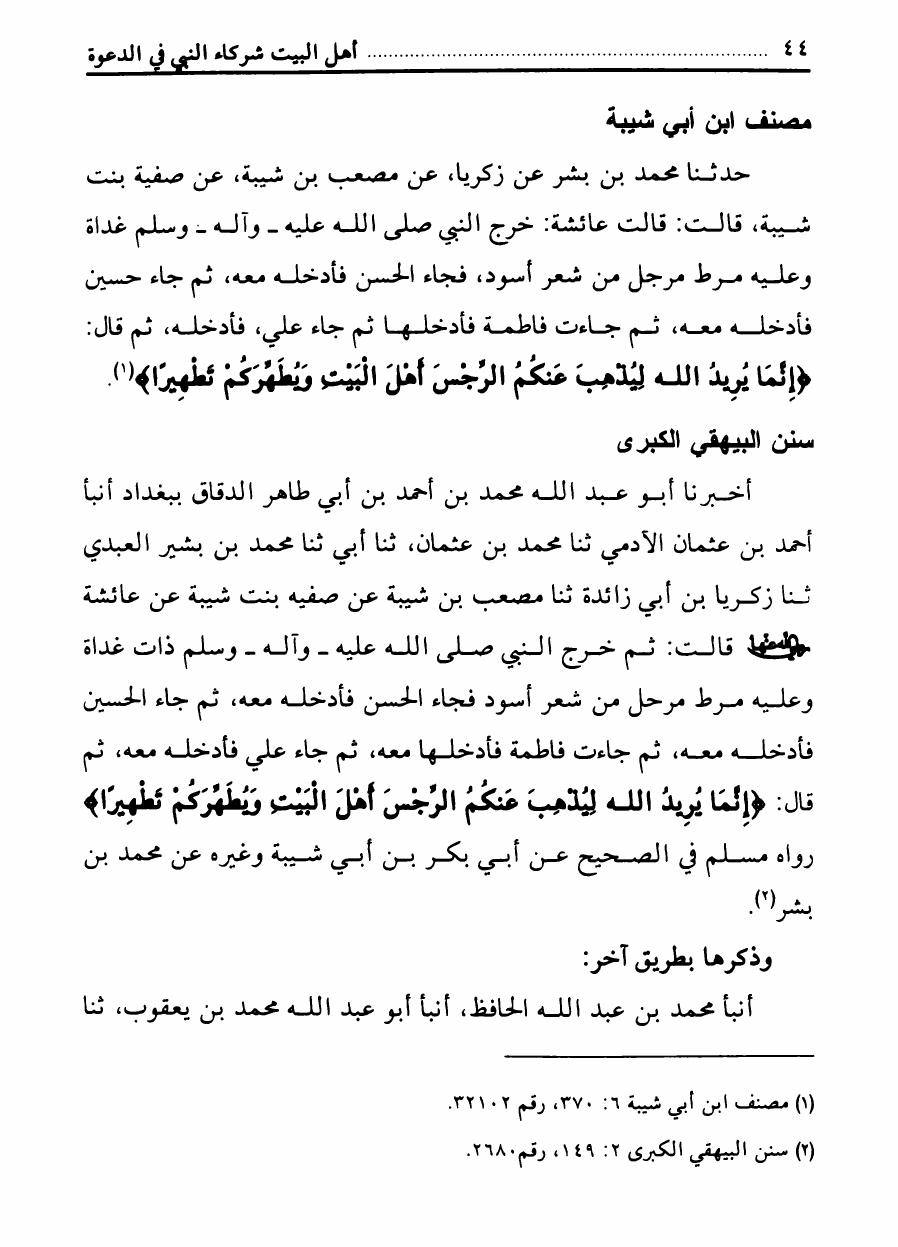 ٤٤ ........................................ أهل البيت شركاء النبي في الدعوة
مصنف ابن أبي شيبة
حدثنا محمد بن بشر عن زكريا، عن مصعب بن شيبة، عن صفية بنت
شيبة، قالت: قالت عائشة: خرج النبي صلى الله عليه ـ وآله ـ وسلم غداة
وعليه مرط مرجل من شعر أسود، فجاء الحسن فأدخله معه، ثم جاء حسين
فأدخله معه، ثم جاءت فاطمة فأدخلها ثم جاء علي، فأدخله، ثم قال:
﴿إِنَّمَا يُرِيدُ الله لِيُذْهِبَ عَنكُمُ الرِّجْسَ أَهْلَ الْبَيْتِ وَيُطَهِّرَكُمْ تَطْهِيرًا﴾(١).
سنن البيهقي الكبرى
أخبرنا أبو عبد الله محمد بن أحمد بن أبي طاهر الدقاق ببغداد أنبأ
أحمد بن عثمان الآدمي ثنا محمد بن عثمان، ثنا أبي ثنا محمد بن بشير العبدي
ثنا زكريا بن أبي زائدة ثنا مصعب بن شيبة عن صفيه بنت شيبة عن عائشة
رضي الله عنها قالت: ثم خرج النبي صلى الله عليه ـ وآله ـ وسلم ذات غداة
وعليه مرط مرحل من شعر أسود فجاء الحسن فأدخله معه، ثم جاء الحسين
فأدخله معه، ثم جاءت فاطمة فأدخلها معه، ثم جاء علي فأدخله معه، ثم
قال: ﴿إِنَّمَا يُرِيدُ الله لِيُذْهِبَ عَنكُمُ الرِّجْسَ أَهْلَ الْبَيْتِ وَيُطَهِّرَكُمْ تَطْهِيرًا﴾
رواه مسلم في الصحيح عن أبي بكر بن أبي شيبة وغيره عن محمد بن
بشر(٢).
وذكرها بطريق آخر:
أنبأ محمد بن عبد الله الحافظ، أنبأ أبو عبد الله محمد بن يعقوب، ثنا
(١) مصنف ابن أبي شيبة ٦: ٣٧٠، رقم ٣٢١٠٢.
(٢) سنن البيهقي الكبرى ٢: ١٤٩، رقم٢٦٨٠.